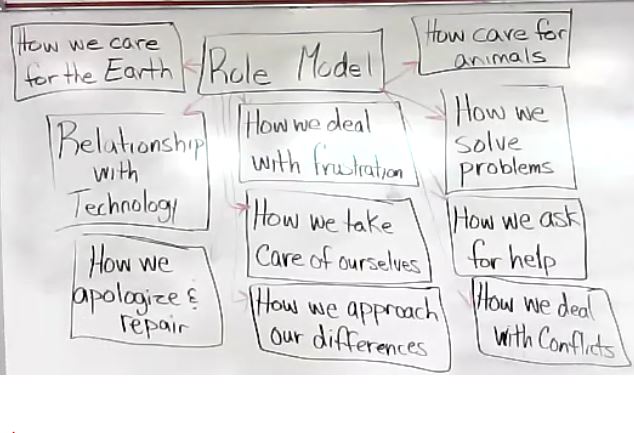 How we care
for the Earth
Role Model
How care for
animals
Relationship
with
Technology
How we deal
with frustration
How we
solve
problems
How we take
Care of ourselves
How we ask
for help
How we
apologize &
repair
How we approach
our differences
How we deal
with Conflicts